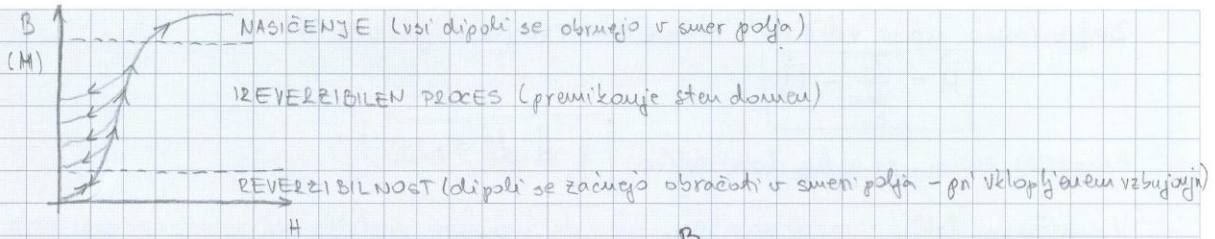 B
(M)
NASIČENJE (vsi dipoli se obrnejo v smer polja)
IREVERZIBILEN PROCES (premikanje sten domen)
REVERZIBILNOST (dipoli se začnejo obračati v smeri polja - pri vklopljenem vzbujanju)
H
B